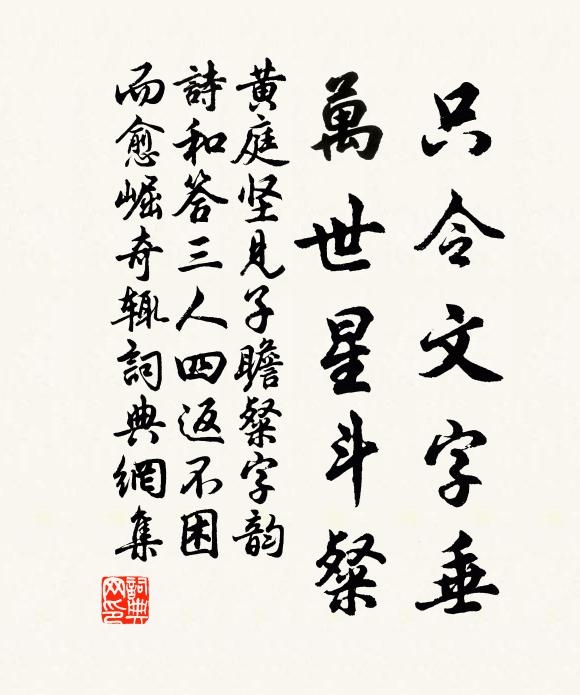 只令文字垂
萬世星斗粲
黄庭坚見子瞻粲字韵
詩和答三人四返不困
而愈崛奇辄詞典網集
詞典
网印